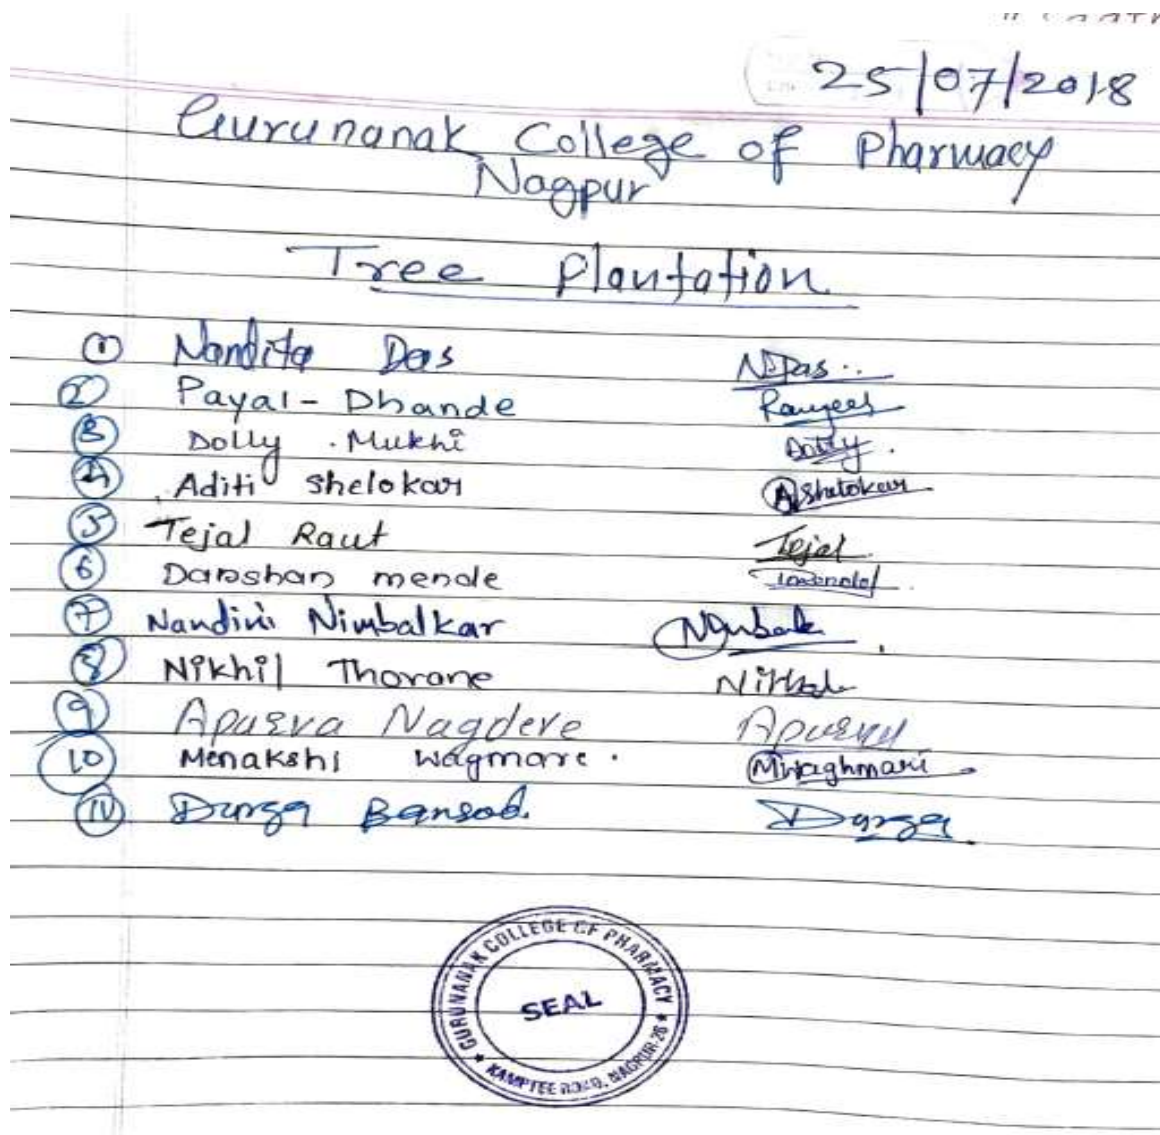 25/07/2018
Gurunanak College of Pharmacy
Nagpur
Tree Plantation
1 Nandita Das NDas..
2 Payal-Dhande
3 Dolly . Mukhi Dolly.
4 Aditi Shelokar AShelokar
5 Tejal Raut Tejal
6 Darshan mende
7 Nandini Nimbalkar
8 Nikhil Thorane Nikhil
9 Apurva Nagdeve Apurva
10 Menakshi wagmare. MWaghmari
11 Durga Bansod. Durga.
GURUNANAK COLLEGE OF PHARMACY
SEAL
★ KAMPTEE ROAD, NAGPUR-26 ★